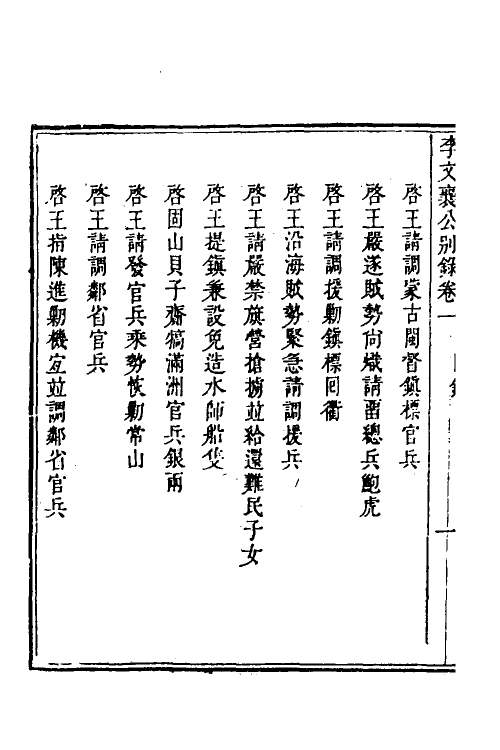 李文襄公別錄卷一 目錄 一
啓王請調蒙古閩督鎭標官兵
啓王嚴遂賊勢尙熾請畱總兵鮑虎
啓王請調援勦鎭標回衢
啓王沿海賊勢緊急請調援兵
啓王請嚴禁旗營搶擄並給還難民子女
啓王提鎭兼設免造水師船隻
啓固山貝子齎犒滿洲官兵銀兩
啓王請發官兵乘勢恢勦常山
啓王請調鄰省官兵
啓王指陳進勦機宜並調鄰省官兵